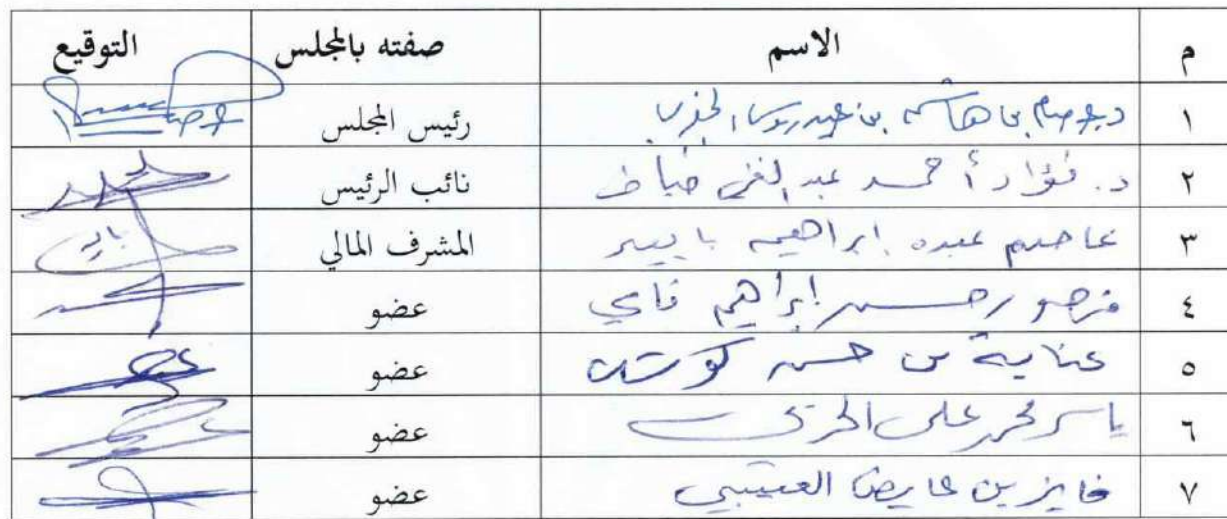 م الاسم صفته بالمجلس التوقيع
١ د. عصام بن هاشم بن عيدروس الجفري رئيس المجلس
٢ د. فؤاد أحمد عبد الغني خياط نائب الرئيس
٣ عاصم عبده إبراهيم بابير المشرف المالي
٤ إبراهيم عضو
٥ عناية حسن عضو
٦ ياسر محمد علي الحربي عضو
٧ فايز بن عايض العتيبي عضو